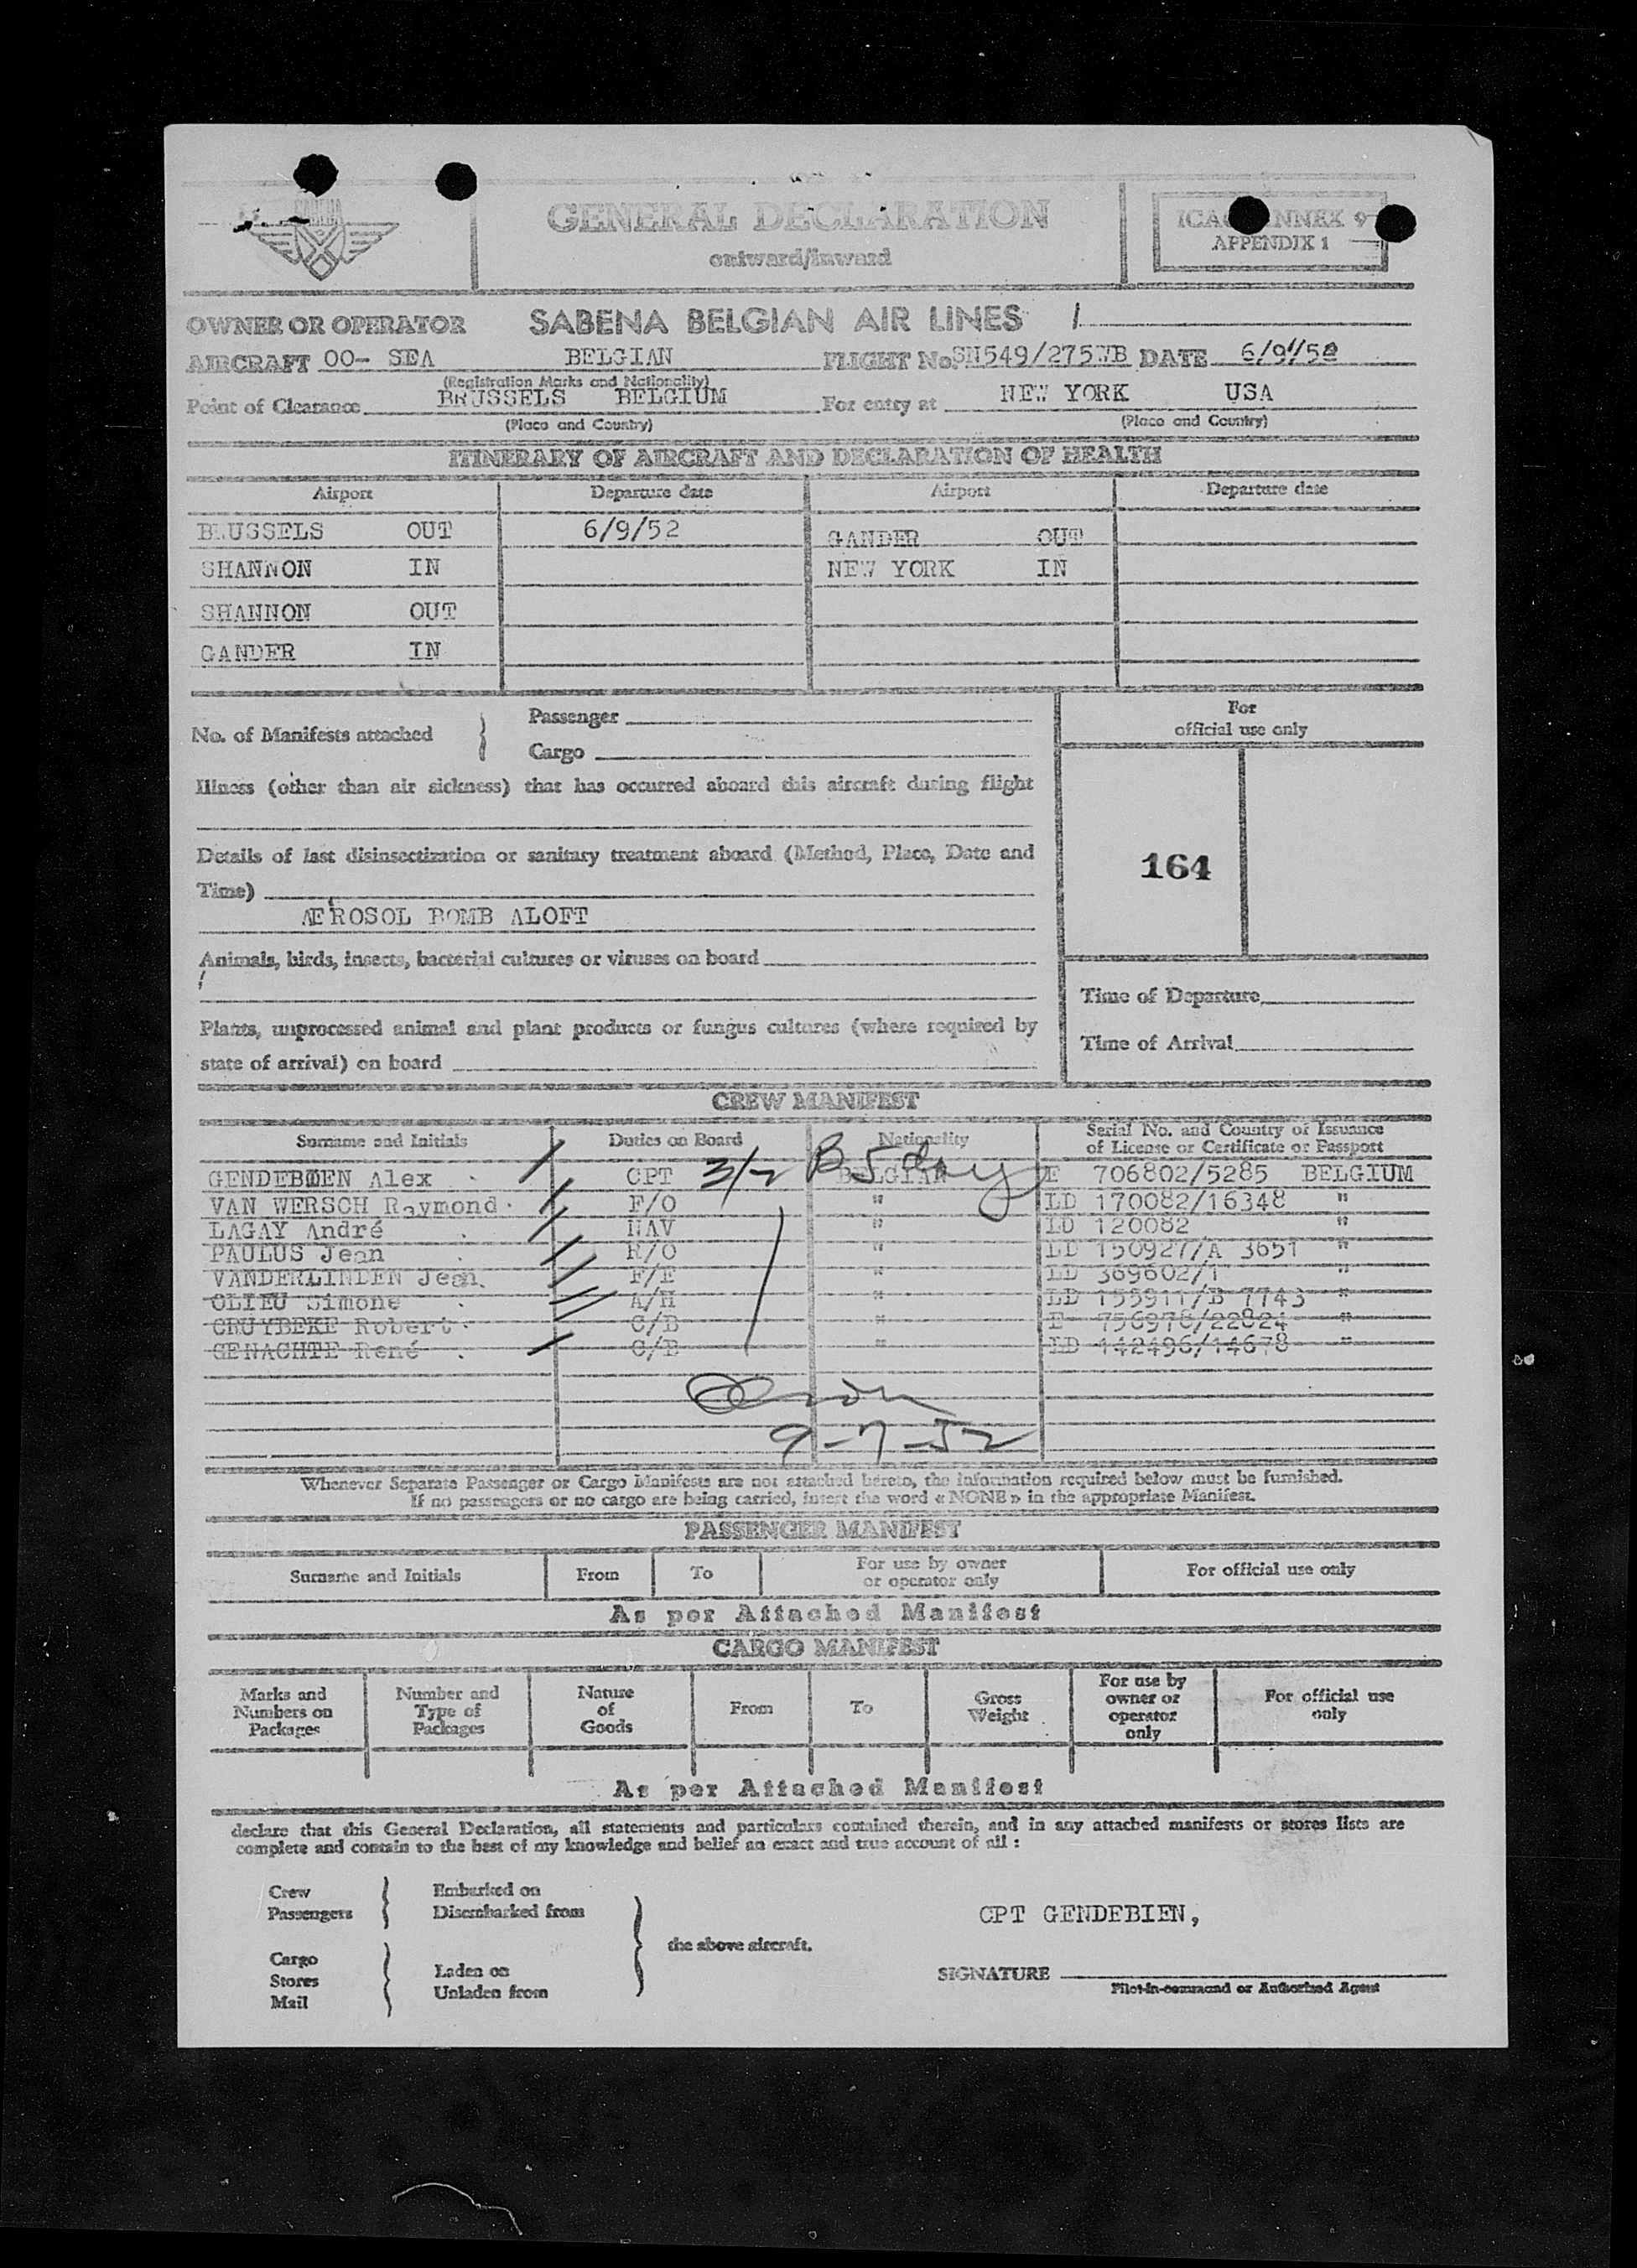 SABENA
GENERAL DECLARATION
outward/inward
ICAO ANNEX 9
APPENDIX 1
OWNER OR OPERATOR SABENA BELGIAN AIR LINES
AIRCRAFT OO- SEA BELGIAN FLIGHT No SN549/275WB DATE 6/9/52
(Registration Marks and Nationality)
Point of Clearance BRUSSELS BELGIUM For entry at NEW YORK USA
(Place and Country) (Place and Country)
ITINERARY OF AIRCRAFT AND DECLARATION OF HEALTH
Airport Departure date Airport Departure date
BRUSSELS OUT 6/9/52 GANDER OUT
SHANNON IN NEW YORK IN
SHANNON OUT
GANDER IN
No. of Manifests attached Passenger
Cargo
For
official use only
Illness (other than air sickness) that has occurred aboard this aircraft during flight
Details of last disinsectization or sanitary treatment aboard (Method, Place, Date and
Time)
164
AEROSOL BOMB ALOFT
Animals, birds, insects, bacterial cultures or viruses on board
Time of Departure
Plants, unprocessed animal and plant products or fungus cultures (where required by
Time of Arrival
state of arrival) on board
CREW MANIFEST
Surname and Initials Duties on Board Nationality Serial No. and Country of Issuance
of License or Certificate or Passport
GENDEBIEN Alex CPT 3/2 BELGIAN E 706802/5285 BELGIUM
VAN WERSCH Raymond F/O " LD 170082/16348 "
LAGAY André NAV " LD 120082 "
PAULUS Jean R/O " LD 150927/A 3651 "
VANDERLINDEN Jean F/E " LD 369602/1 "
OLIEU Simone A/H " LD 155911/B 7743 "
CRUYBEKE Robert C/B " E 756978/22824 "
GENACHTE René C/B " LD 142496/14678 "
9-7-52
Whenever Separate Passenger or Cargo Manifests are not attached hereto, the information required below must be furnished.
If no passengers or no cargo are being carried, insert the word « NONE » in the appropriate Manifest.
PASSENGER MANIFEST
Surname and Initials From To For use by owner or operator only For official use only
As per Attached Manifest
CARGO MANIFEST
Marks and Numbers on Packages Number and Type of Packages Nature of Goods From To Gross Weight For use by owner or operator only For official use only
As per Attached Manifest
declare that this General Declaration, all statements and particulars contained therein, and in any attached manifests or stores lists are
complete and contain to the best of my knowledge and belief an exact and true account of all :
Crew Embarked on
Passengers Disembarked from
CPT GENDEBIEN,
the above aircraft.
Cargo
Stores Laden on
Mail Unladen from
SIGNATURE
Pilot-in-command or Authorized Agent